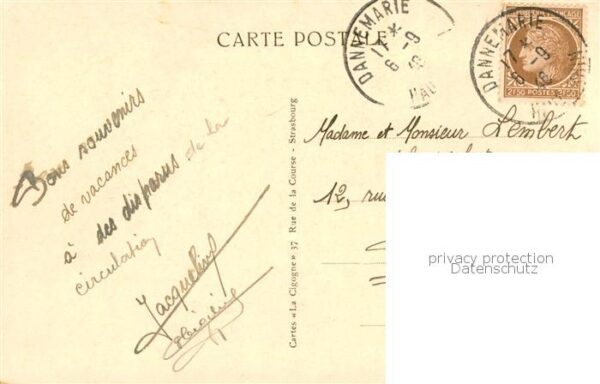 CARTE POSTALE
DANNEMARIE
17 *
6 -9
DANNEMARIE
17 *
6 -9
2F50 POSTES 2F50
Bons souvenirs
de vacances
à des disparus de la
circulation
Jacqueline
Cartes «La Cigogne» 37 Rue de la Course - Strasbourg
Madame et Monsieur Lembert
12, rue
privacy protection
Datenschutz